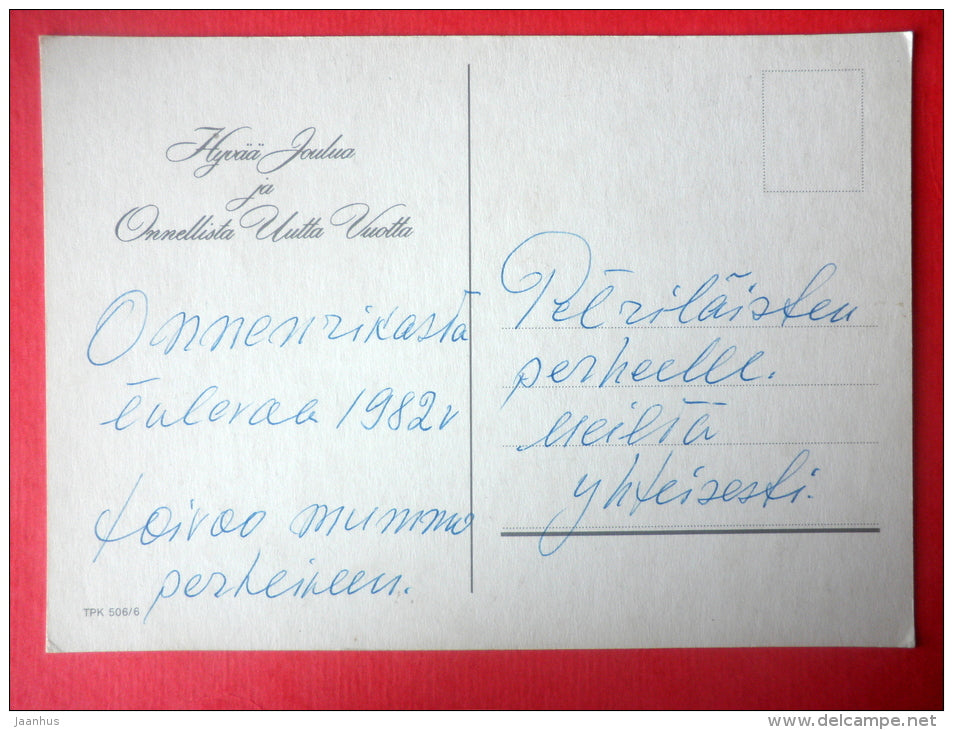 Hyvää Joulua
ja
Onnellista Uutta Vuotta
Onnenrikasta
tulevaa 1982 v
toivoo mummo
perheineen.
TPK 506/6
Petriläisten
perheelle.
Meiltä
yhteisesti.
jaanhus
delcampe.net